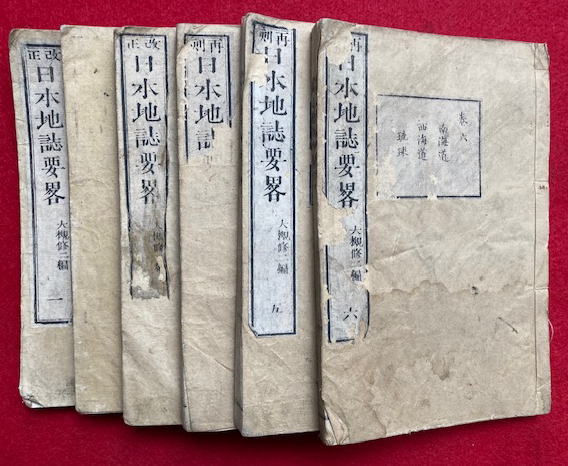 日本地誌要畧
大槻修二編
六
卷六
南海道
西海道
琉球
再刻
日本地誌要畧
大槻修二編
五
再刻
日本地誌
改正
日本地誌要畧
改正
日本地誌要畧
大槻修二編
一